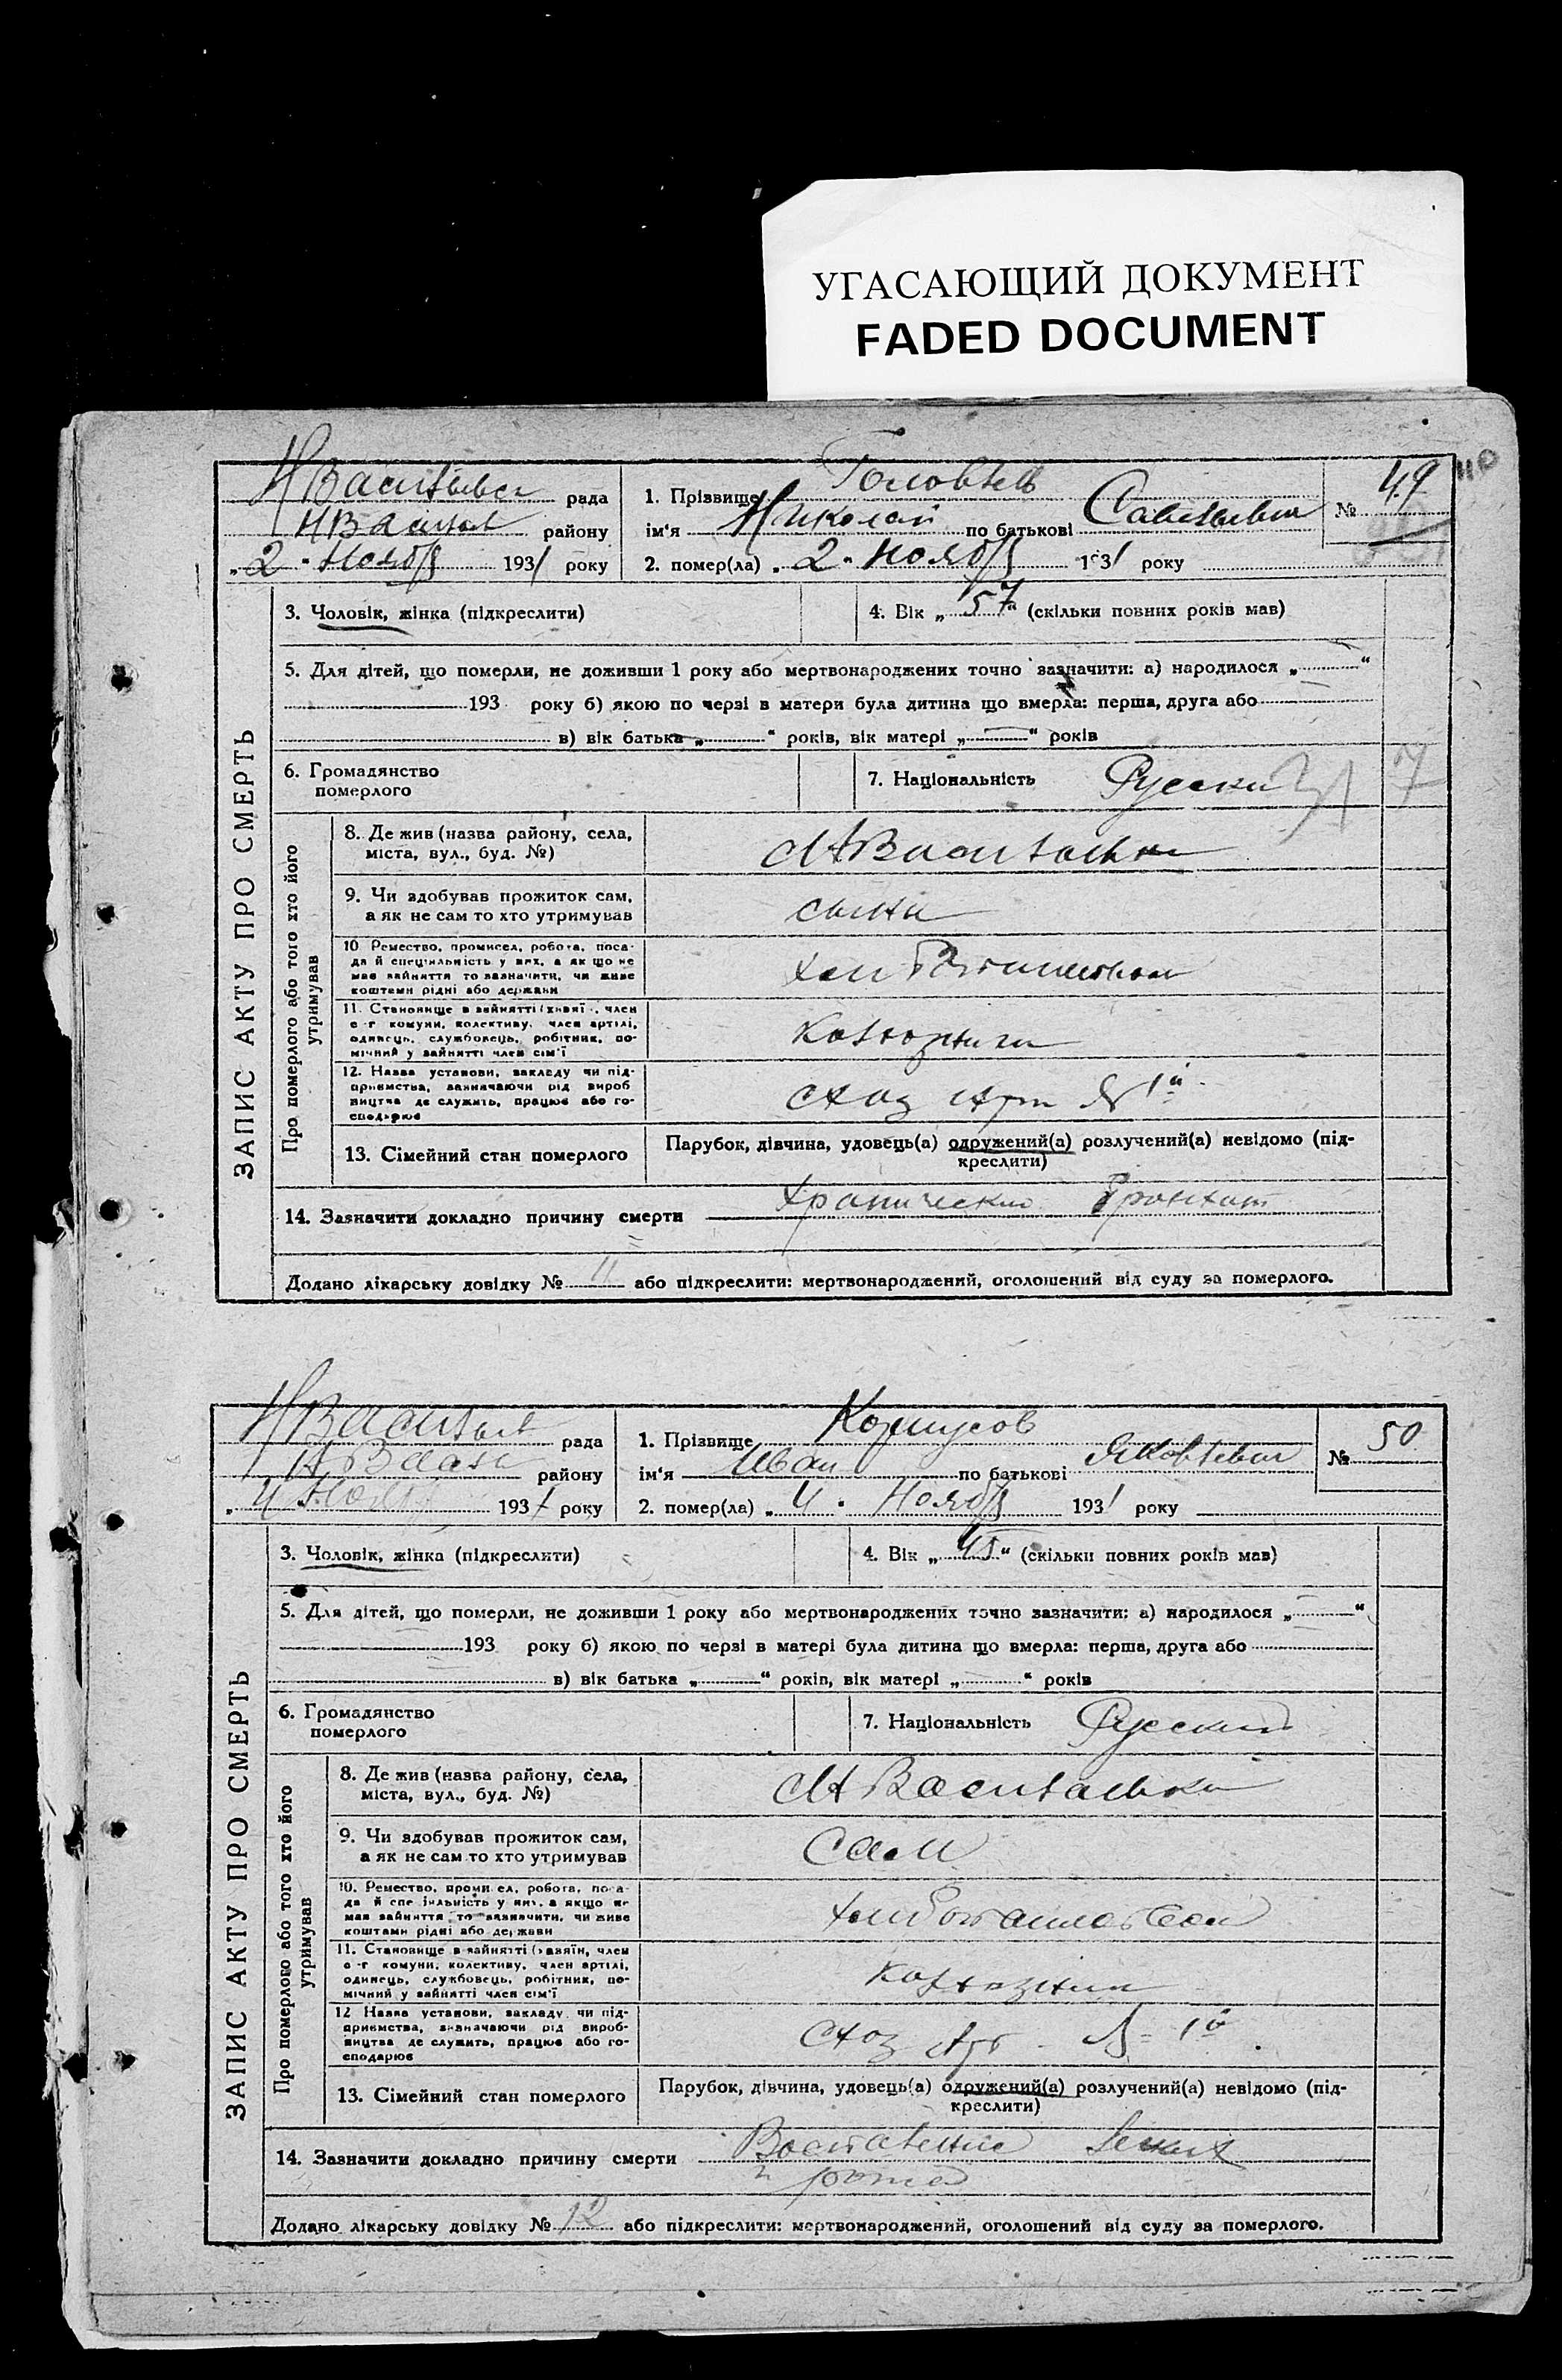 УГАСАЮЩИЙ ДОКУМЕНТ
FADED DOCUMENT
110
ЗАПИС АКТУ ПРО СМЕРТЬ
рада
району
„2“ Нояб 1931 року
1. Прізвище
ім'я Николай по батькові Савельевич
№ 49
2. помер(ла) „2“ Нояб 1931 року
3. Чоловік, жінка (підкреслити)
4. Вік „57“ (скільки повних років мав)
5. Для дітей, що померли, не доживши 1 року або мертвонароджених точно зазначити: а) народилося „ “
193 року б) якою по черзі в матери була дитина що вмерла: перша, друга або
в) вік батька „ “ років, вік матері „ “ років
6. Громадянство
померлого
7. Національність Русски
7
Про померлого або того хто його
утримував
8. Де жив (назва району, села,
міста, вул., буд. №)
Н Васильевка
9. Чи здобував прожиток сам,
а як не сам то хто утримував
сыны
10. Ремество, промисел, робота, поса-
да й спеціяльність у них, а як що не
мав зайняття то зазначити, чи живе
коштами рідні або держави
11. Становище в зайнятті (хазяїн, член
с-г комуни, колективу, член артілі,
одинець, службовець, робітник, по-
мічний у зайнятті член сім'ї
Колхозники
12. Назва установи, закладу чи під-
приємства, зазначаючи рід вироб
ництва де служить, працює або го-
сподарює
СХоз Арт № 1й
13. Сімейний стан померлого
Парубок, дівчина, удовець(а) одружений(а) розлучений(а) невідомо (під-
креслити)
14. Зазначити докладно причину смерти Хронический Бронхит
Додано лікарську довідку № 11 або підкреслити: мертвонароджений, оголошений від суду за померлого.
ЗАПИС АКТУ ПРО СМЕРТЬ
рада
району
„4 Нояб 1931 року
1. Прізвище
ім'я Иван по батькові Яковлевич
№ 50
2. помер(ла) „4“ Нояб 1931 року
3. Чоловік, жінка (підкреслити)
4. Вік „45“ (скільки повних років мав)
5. Для дітей, що померли, не доживши 1 року або мертвонароджених точно зазначити: а) народилося „ “
193 року б) якою по черзі в матері була дитина що вмерла: перша, друга або
в) вік батька „ “ років, вік матері „ “ років
6. Громадянство
померлого
7. Національність Русский
Про померлого або того хто його
утримував
8. Де жив (назва району, села,
міста, вул., буд. №)
Н Васильевка
9. Чи здобував прожиток сам,
а як не сам то хто утримував
Сам
10. Ремество, промисел, робота, поса-
да й спеціяльність у них, а якщо не
мав зайняття то зазначити, чи живе
коштами рідні або держави
11. Становище в зайнятті (хазяїн, член
с-г комуни, колективу, член артілі,
одинець, службовець, робітник, по-
мічний у зайнятті член сім'ї
Колхозник
12 Назва установи, закладу чи під-
приємства, зазначаючи рід вироб-
ництва де служить, працює або го-
сподарює
СХоз Арт № 1й
13. Сімейний стан померлого
Парубок, дівчина, удовець(а) одружений(а) розлучений(а) невідомо (під-
креслити)
14. Зазначити докладно причину смерти
Додано лікарську довідку № 12 або підкреслити: мертвонароджений, оголошений від суду за померлого.